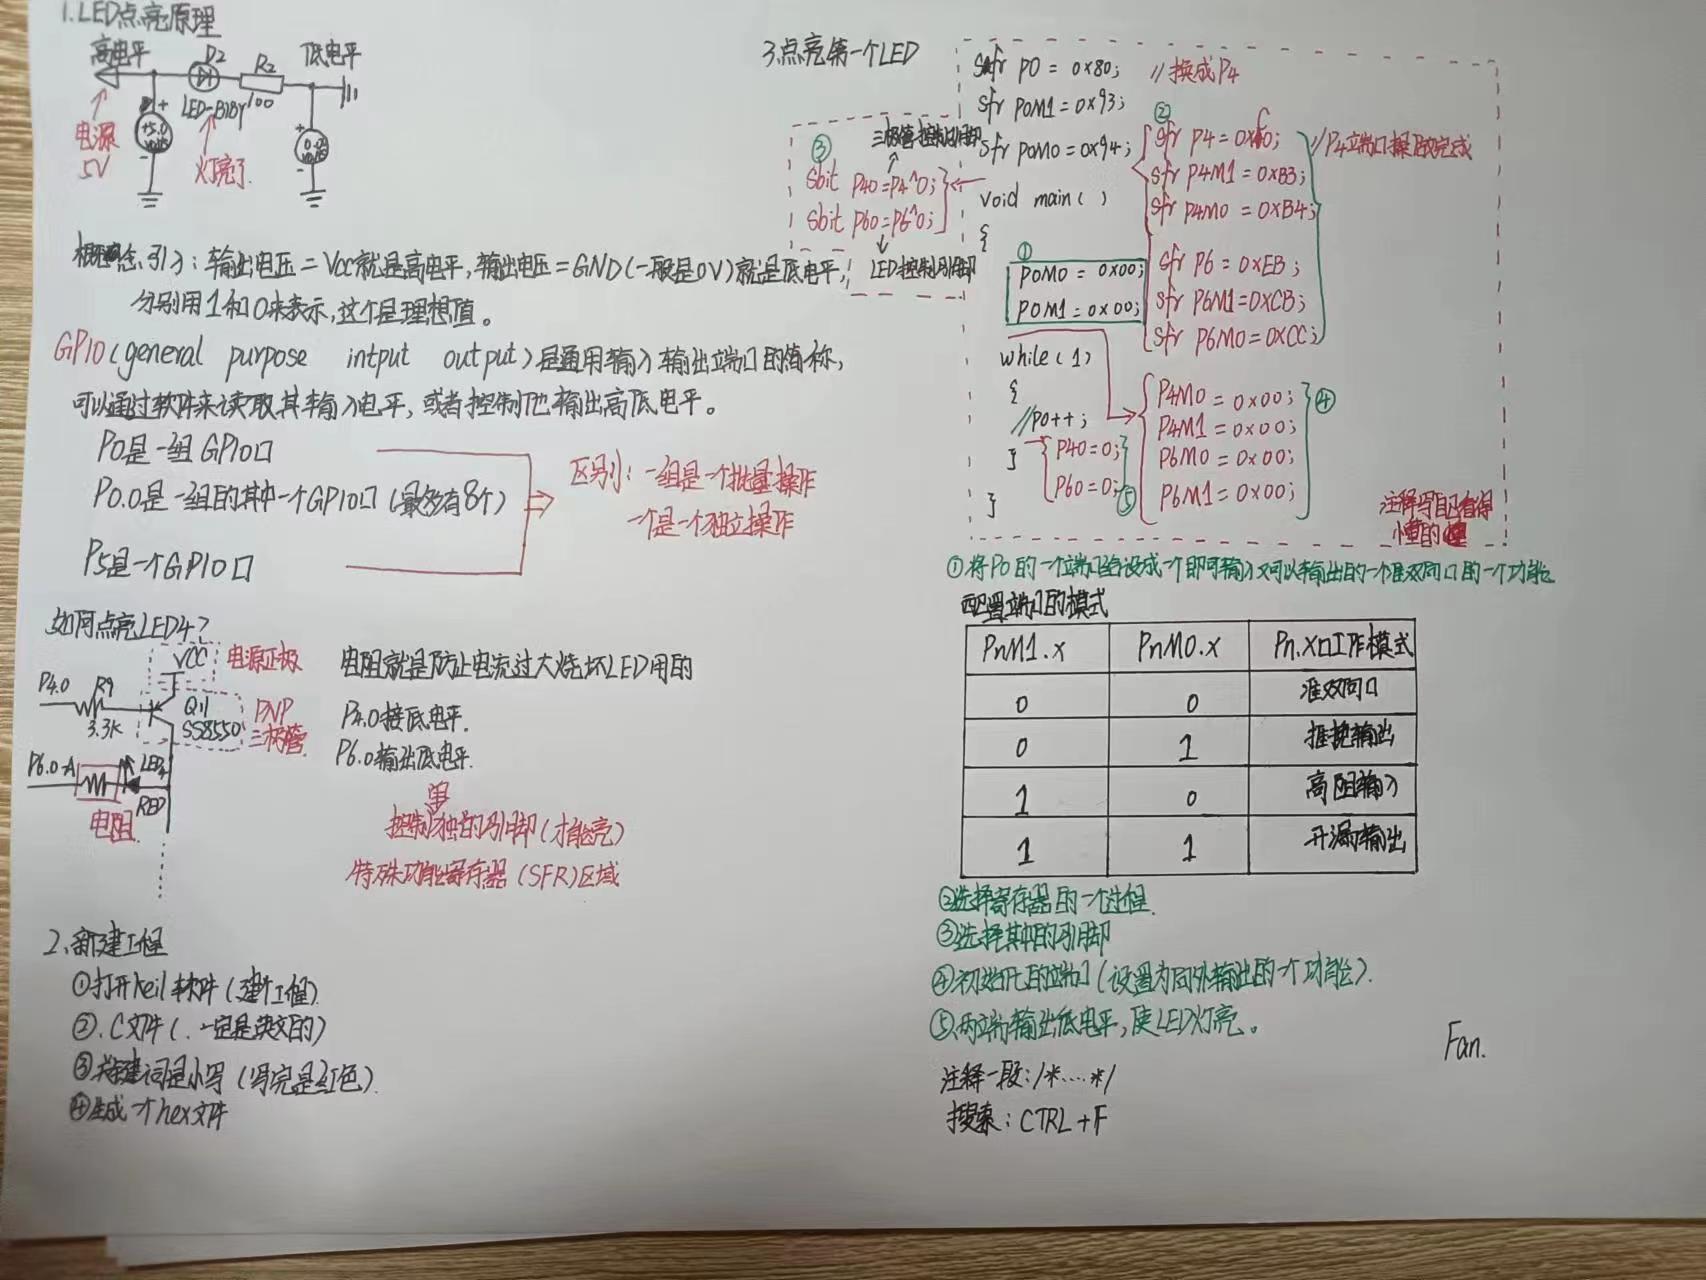 1.LED点亮原理
高电平
D2
R2
低电平
LED-BIBY
100
+5.0
0.0
电源
5V
灯亮了
概念引入：输出电压=Vcc就是高电平,输出电压=GND(一般是0V)就是低电平,
分别用1和0来表示,这个是理想值。
GPIO(general purpose intput output)是通用输入输出端口的简称,
可以通过软件来读取其输入电平,或者控制他输出高低电平。
P0是一组GPIO口
P0.0是一组的其中一个GPIO口(最多有8个)
P5是一个GPIO口
区别：一组是一个批量操作
一个是一个独立操作
如何点亮LED4?
VCC
电源正极
P4.0
R9
3.3K
Q11
SS8550
PNP
三极管
P6.0-A
LED4
RED
电阻
电阻就是防止电流过大烧坏LED用的
P4.0接低电平.
P6.0输出低电平.
控制单独的引脚(才能亮)
特殊功能寄存器(SFR)区域
2.新建工程
①打开keil软件(建个工程).
②.C文件(.一定是英文的)
③关键词是小写(写完是红色).
④生成一个hex文件
3.点亮第一个LED
sfr P0 = 0x80; //换成P4
sfr P0M1=0x93;
sfr P0M0=0x94;
②
sfr P4=0xC0; //P4端口操作完成
sfr P4M1=0XB3;
sfr P4M0=0XB4;
sfr P6=0XEB;
sfr P6M1=0XCB;
sfr P6M0=0XCC;
③
三极管控制引脚
sbit P40=P4^0;
sbit P60=P6^0;
LED控制引脚
void main()
{
①
P0M0=0x00;
P0M1=0x00;
while(1)
{
//P0++;
P40=0;
P60=0;
⑤
}
}
P4M0=0x00;
P4M1=0x00;
P6M0=0x00;
P6M1=0x00;
④
注释写自己看得
懂的
①将P0的一个端口给设成一个即可输入又可以输出的一个准双向口的一个功能.
配置端口的模式
PnM1.x PnM0.x Pn.x口工作模式
0 0 准双向口
0 1 推挽输出
1 0 高阻输入
1 1 开漏输出
②选择寄存器的一个过程.
③选择其中的引脚
④初始化的端口(设置为向外输出的一个功能).
⑤两端输出低电平,使LED灯亮。
注释一段:/*....*/
搜索：CTRL+F
Fan.